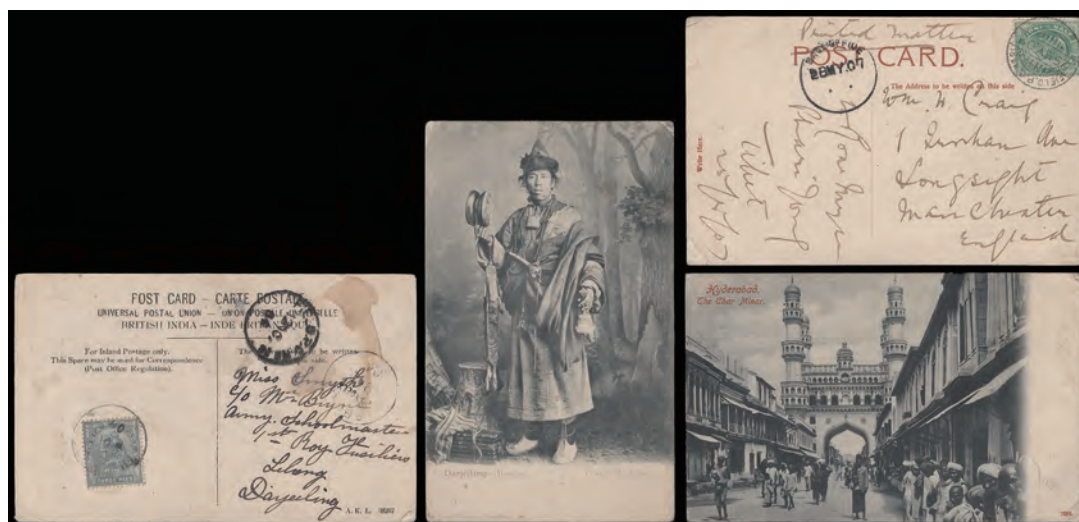 POST CARD – CARTE POSTALE
UNIVERSAL POSTAL UNION – UNION POSTALE UNIVERSELLE
BRITISH INDIA – INDE BRITANNIQUE
For Inland Postage only.
This Space may be used for Correspondence
(Post Office Regulation).
The be written
side.
Miss Smythe
c/o Mrs
Army Schoolmaster
1st Roy Fusiliers
Lebong
Darjeeling
A. K. L.
Darjeeling
Printed Matter
POST CARD.
28 MY.07
The Address to be written on this side
Write Here.
Phari Jong
Tibet
Wm. W. Craig
1 Ave
Longsight
Manchester
England
Hyderabad,
The Char Minar.